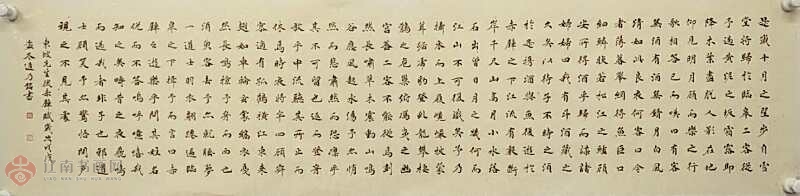 是歲十月之望步自雪
堂將歸於臨皋二客從
予過黃泥之坂霜露既
降木葉盡脫人影在地
仰見明月顧而樂之行
歌相答已而嘆曰有客
無酒有酒無肴月白風
清如此良夜何客曰今
者薄暮舉網得魚巨口
細鱗狀若松江之鱸顧
安所得酒乎歸而謀諸
婦婦曰我有斗酒藏之
久矣以待子不時之須
於是攜酒與魚復遊於
赤壁之下江流有聲斷
岸千尺山高月小水落
石出曾日月之幾何而
江山不可復識矣予乃
攝衣而上履巉巖披蒙
茸踞虎豹登虬龍攀棲
鶻之危巢俯馮夷之幽
宮蓋二客不能從焉劃
然長嘯草木震動山鳴
谷應風起水涌予亦悄
然而悲肅然而恐凜乎
其不可留也反而登舟
放乎中流聽其所止而
休焉時夜將半四顧寂
寥適有孤鶴橫江東來
翅如車輪玄裳縞衣戛
然長鳴掠予舟而西也
須臾客去予亦就睡夢
一道士羽衣翩躚過臨
皋之下揖予而言曰赤
壁之遊樂乎問其姓名
俛而不答嗚呼噫嘻我
知之矣疇昔之夜飛鳴
而過我者非子也邪道
士顧笑予亦驚悟開戶
視之不見其處
東坡先生後赤壁賦歲
孟冬 乃銘書
江南书画网